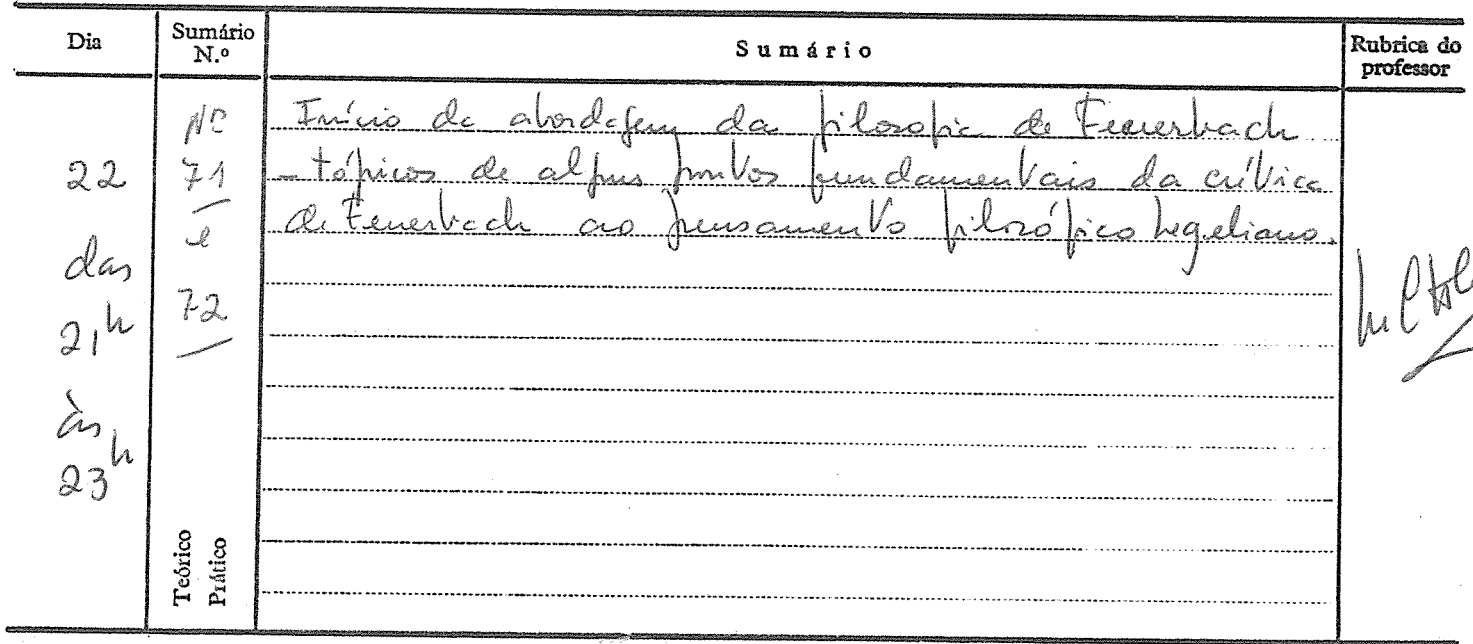 Dia
Sumário N.º
Sumário
Rubrica do professor
22
das
21h
às
23h
Nº
71
e
72
Início da abordagem da filosofia de Feuerbach
- tópicos de alguns pontos fundamentais da crítica
de Feuerbach ao pensamento filosófico hegeliano.
Teórico
Prático